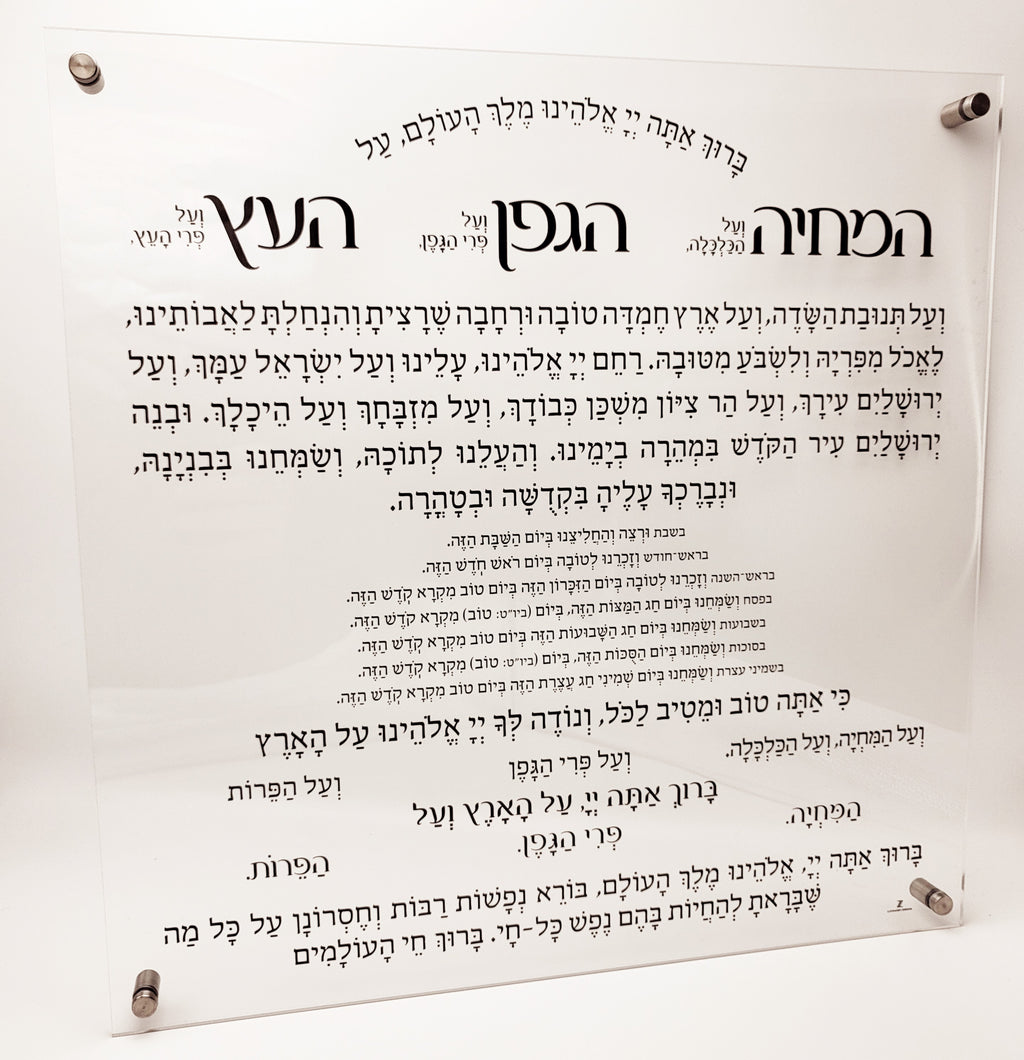 בָּרוּךְ אַתָּה יְיָ אֱלֹהֵינוּ מֶלֶךְ הָעוֹלָם, עַל
המחיה וְעַל הַכַּלְכָּלָה, הגפן וְעַל פְּרִי הַגֶּפֶן, העץ וְעַל פְּרִי הָעֵץ,
וְעַל תְּנוּבַת הַשָּׂדֶה, וְעַל אֶרֶץ חֶמְדָּה טוֹבָה וּרְחָבָה שֶׁרָצִיתָ וְהִנְחַלְתָּ לַאֲבוֹתֵינוּ,
לֶאֱכֹל מִפִּרְיָהּ וְלִשְׂבֹּעַ מִטּוּבָהּ. רַחֵם יְיָ אֱלֹהֵינוּ, עָלֵינוּ וְעַל יִשְׂרָאֵל עַמָּךְ, וְעַל
יְרוּשָׁלַיִם עִירָךְ, וְעַל הַר צִיּוֹן מִשְׁכַּן כְּבוֹדָךְ, וְעַל מִזְבָּחָךְ וְעַל הֵיכָלָךְ. וּבְנֵה
יְרוּשָׁלַיִם עִיר הַקֹּדֶשׁ בִּמְהֵרָה בְיָמֵינוּ. וְהַעֲלֵנוּ לְתוֹכָהּ, וְשַׂמְּחֵנוּ בְּבִנְיָנָהּ,
וּנְבָרֶכְךָ עָלֶיהָ בִּקְדֻשָּׁה וּבְטָהֳרָה.
בשבת וּרְצֵה וְהַחֲלִיצֵנוּ בְּיוֹם הַשַּׁבָּת הַזֶּה.
בראש־חודש וְזָכְרֵנוּ לְטוֹבָה בְּיוֹם רֹאשׁ חֹדֶשׁ הַזֶּה.
בראש־השנה וְזָכְרֵנוּ לְטוֹבָה בְּיוֹם הַזִּכָּרוֹן הַזֶּה בְּיוֹם טוֹב מִקְרָא קֹדֶשׁ הַזֶּה.
בפסח וְשַׂמְּחֵנוּ בְּיוֹם חַג הַמַּצּוֹת הַזֶּה, בְּיוֹם (ביו״ט: טוֹב) מִקְרָא קֹדֶשׁ הַזֶּה.
בשבועות וְשַׂמְּחֵנוּ בְּיוֹם חַג הַשָּׁבוּעוֹת הַזֶּה בְּיוֹם טוֹב מִקְרָא קֹדֶשׁ הַזֶּה.
בסוכות וְשַׂמְּחֵנוּ בְּיוֹם הַסֻּכּוֹת הַזֶּה, בְּיוֹם (ביו״ט: טוֹב) מִקְרָא קֹדֶשׁ הַזֶּה.
בשמיני עצרת וְשַׂמְּחֵנוּ בְּיוֹם שְׁמִינִי חַג עֲצֶרֶת הַזֶּה בְּיוֹם טוֹב מִקְרָא קֹדֶשׁ הַזֶּה.
כִּי אַתָּה טוֹב וּמֵטִיב לַכֹּל, וְנוֹדֶה לְּךָ יְיָ אֱלֹהֵינוּ עַל הָאָרֶץ
וְעַל הַמִּחְיָה, וְעַל הַכַּלְכָּלָה. וְעַל פְּרִי הַגָּפֶן וְעַל הַפֵּרוֹת
בָּרוּךְ אַתָּה יְיָ, עַל הָאָרֶץ וְעַל
הַמִּחְיָה. פְּרִי הַגָּפֶן. הַפֵּרוֹת.
בָּרוּךְ אַתָּה יְיָ, אֱלֹהֵינוּ מֶלֶךְ הָעוֹלָם, בּוֹרֵא נְפָשׁוֹת רַבּוֹת וְחֶסְרוֹנָן עַל כָּל מַה
שֶּׁבָּרָאתָ לְהַחֲיוֹת בָּהֶם נֶפֶשׁ כָּל-חָי. בָּרוּךְ חֵי הָעוֹלָמִים